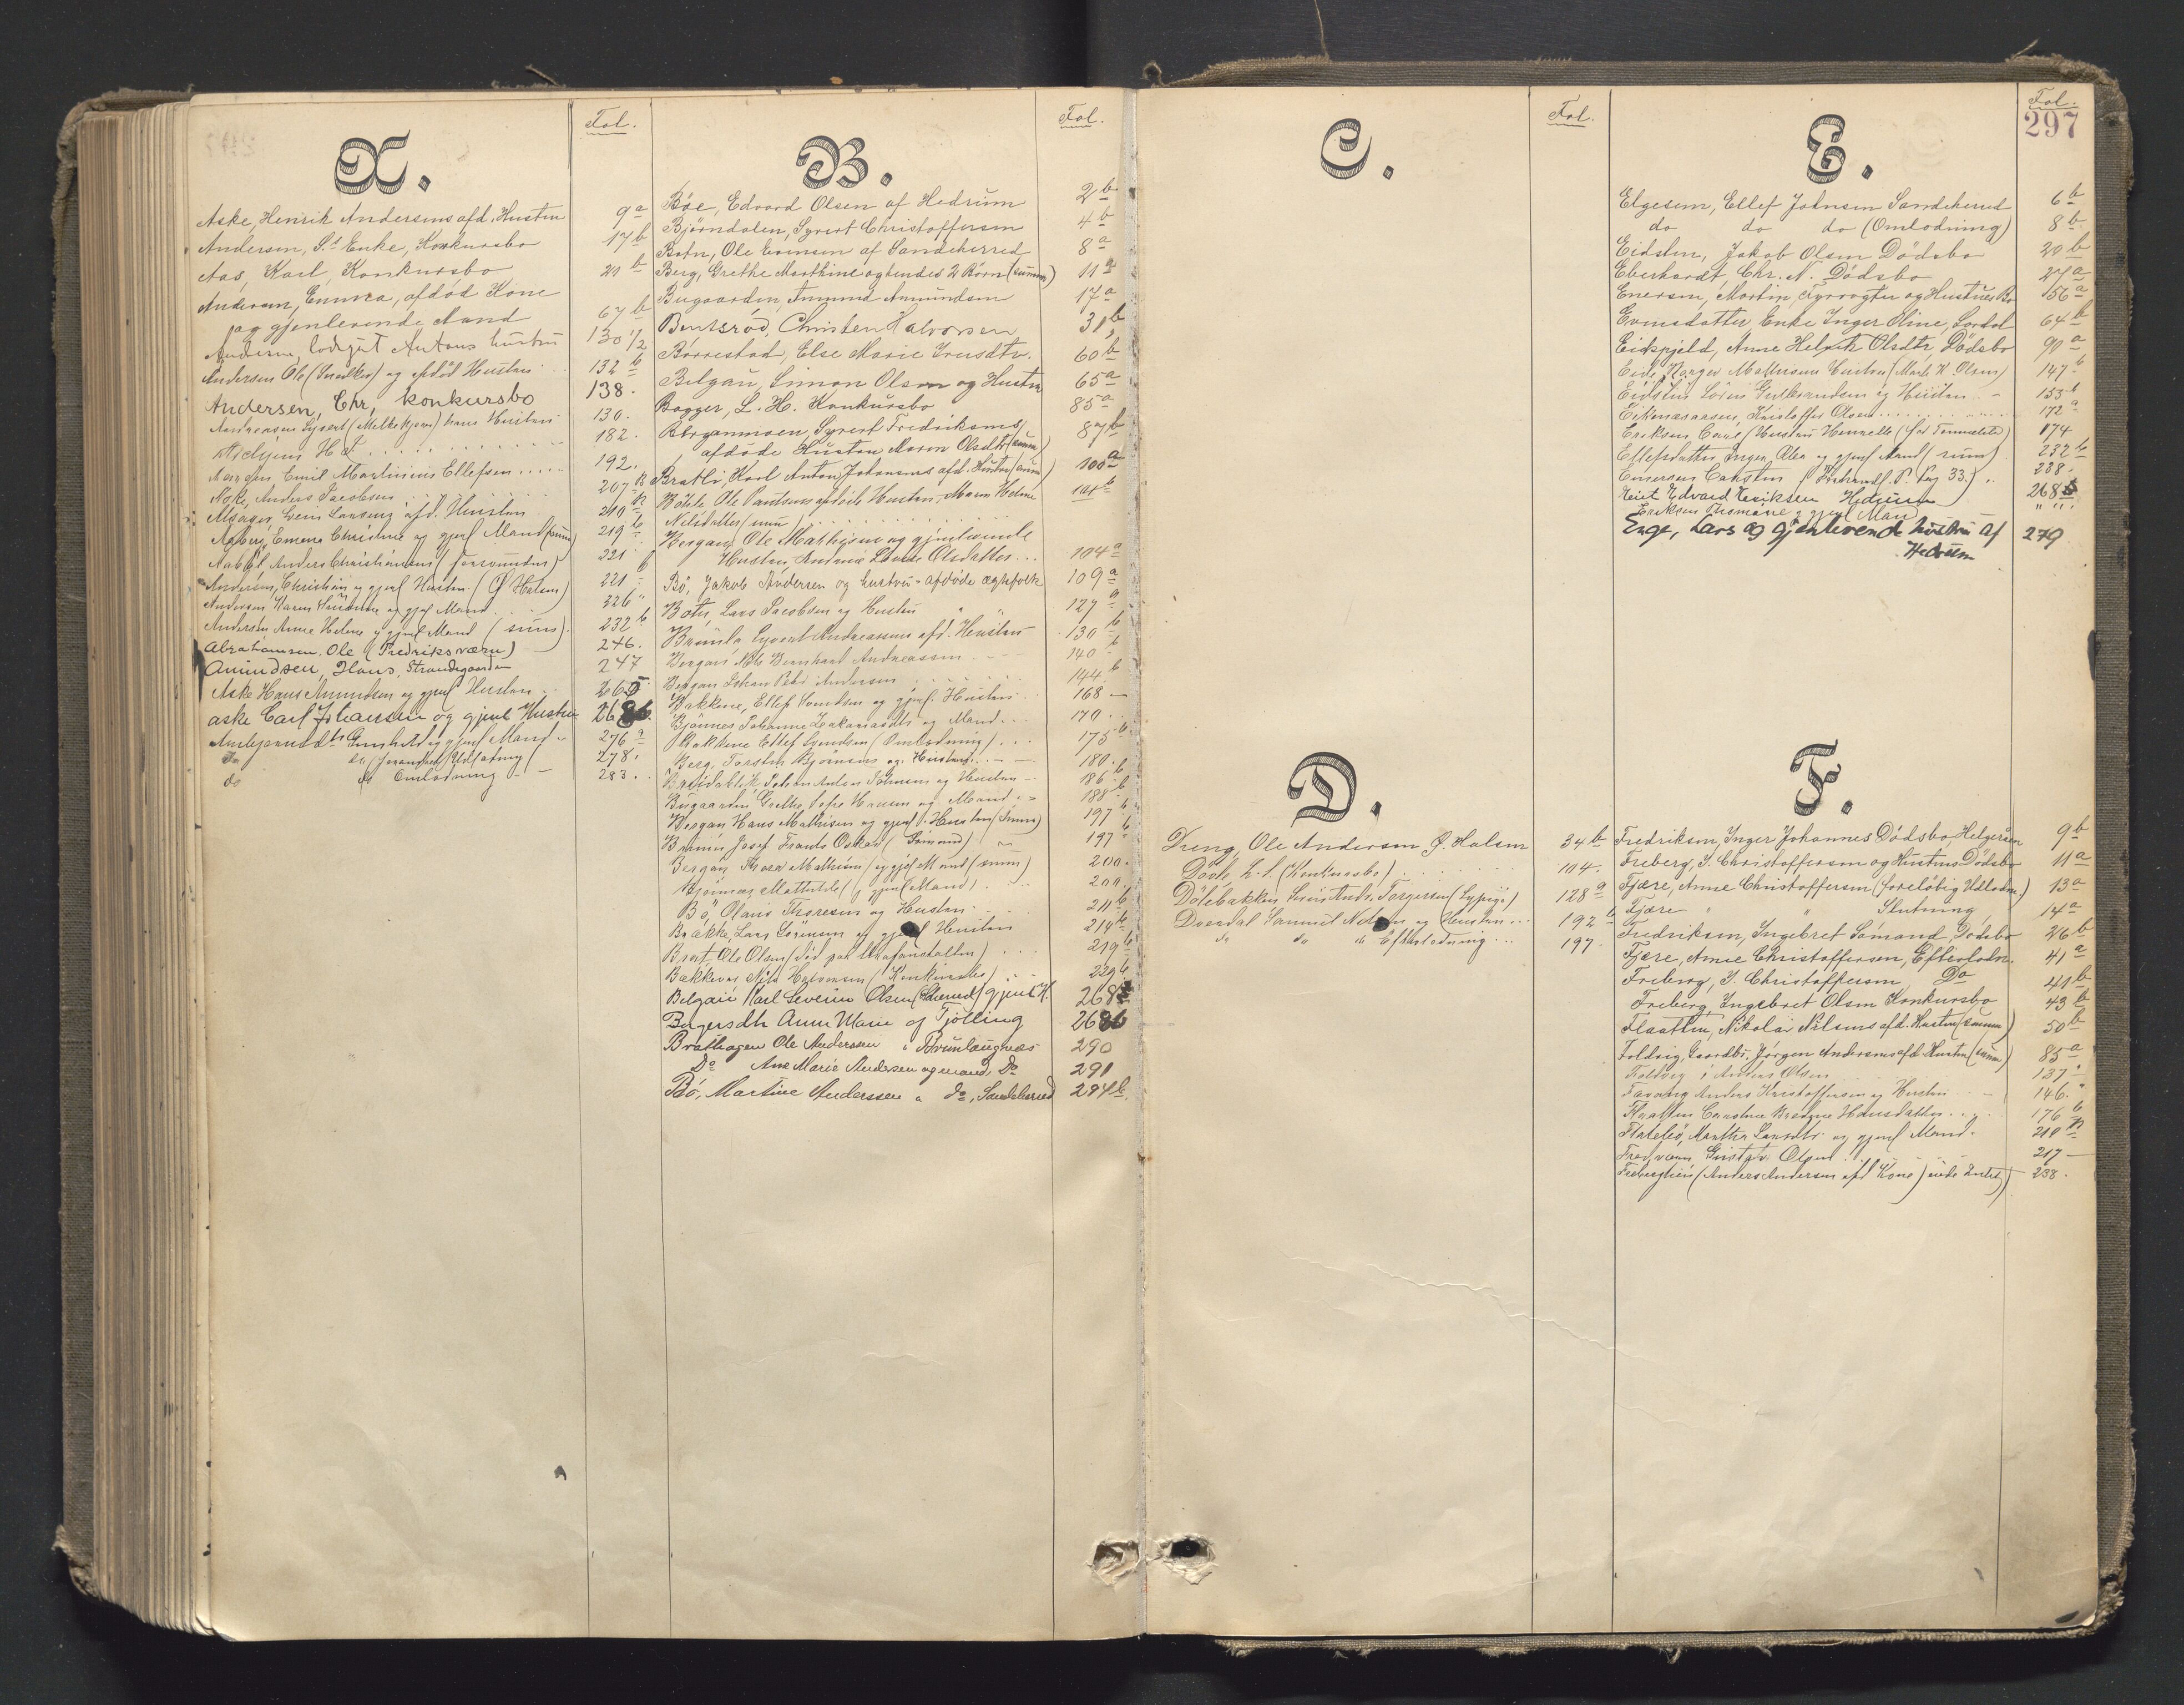 A.
Fol.
Aske, Henrik Andersens afd. Hustru 9a
Andersen, S.s Enke, Konkursbo 17b
Aas, Karl, Konkursbo 21b
Andersen, Emma, afdød Kone
og gjenlevende Mand 67b
Andersen, Antons hustru 130 1/2
Andersen Ole (Snedker) og afdød Hustru 132b
Andersen, Chr, konkursbo 138.
Andreasen Syvert (Melkekjører) hans Hustru 130.
182.
Emil Martinius Ellefsen 192.
Aske, Anders Jacobsen 207B
afd. Hustru 210B
Emma Christine og gjenl Mand (sum) 219b
Anders Christiansens 221
Andersen, Christian og gjenl Hustru (Ø Halsen) 221
Andersen Karen og gjenl Mand 226
Andersen Anne Helene og gjenl Mand (sum) 232b
Abrahamsen, Ole (Fredriksværn) 246.
Amundsen, Hans, Strandgaarden 247
Aske Hans Amundsen og gjenl Hustru 265
aske Carl Johansen og gjenl Hustru 268b.
Gunhild og gjenl Mand 276a
do do 278.
do do Omlodning 283.
B.
Fol.
Bøe, Edvard Olsen af Hedrum 2b
Bjørndalen, Syvert Christoffersen 4b
Botn, Ole Evensen af Sandeherred 8a
Berg, Grethe Marthine og hendes 2 Børn (summ) 11a
Bugaarden, Amund Amundsen 17a
Bentsrød, Christen Halvorsen 31b
Børrestad, Else Marie Iversdtr. 60b
Belgau, Simon Olsen og Hustru 65a
Bagger, L. H. Konkursbo 85a
Berganmoen, Syvert Fredriksens
afdøde Hustru Maren Olsdtr (summ) 87b
Bratli, Karl Anton Johansens afd. Hustru (summ) 100a
Ole afdøde Hustru, Maren Helene
Nilsdatter (sum) 101b
Bergan, Ole Mathisen og gjenlevende
Hustru Andrine Lovise Olsdatter 104a
Bø, Jakob Andersen og hustru - afdøde ægtefolk 109a
Lars Jacobsen og Hustru 127a
Syvert Andreassen afd. Hustru 130b
Bergan, Nils Bernhard Andreassen 140b
Bergan Johan Peder Andersen 144b
Bakkene, Ellef Svendsen og gjenl. Hustru 168
Bjønnes Johanne Zakariasdtr og Mand 170.
Bakkene Ellef Svendsen (Omlodning) 175b
Berg, Torsten Bjørnsens og Hustru 180.
Johan Anton Johnsen og Hustru 186b
Bugaarden Grethe Sofie Hansen og Mand 188b
Bergan Hans Mathisen og gjenl. Hustru (Summ) 197b
Josef Frants Oskar (Sømand) 197b
Bergan Mathisen og gjl Mand (sum) 200.
Bjønnes Mathilde (gjenl Mand) 200.
Bø, Olaus Thoresen og Hustru 211b
Brække, Lars Sørensen og gjenl Hustru 214b
Ole Olsen død paa 219b
Bakkevær, Nils Halvorsen (Konkursbo) 229b
Belgau Karl Severin Olsen (Sandeherred) gjenl H. 268b
Birgersdtr Anne Marie af Tjølling 268b
Brathagen Ole Andersen " Brunlaugnæs 290
Do Ane Marie Andersen og mand, Do 291
Bø, Martine Anderssen " do, Sandeherred 284b.
C.
Fol.
D.
Dreng, Ole Andersen Ø. Halsen 34b
Dovle L. S. (Konkursbo) 104.
Dølebakken Torgersen 128a
Dverdal Samuel Nelsen og Hustru 192b
do do do Efterlodning 197.
E.
Fol.
297
Elgesem, Ellef Johnsen Sandeherred 6b
do do do (Omlodning) 8b
Eidsten, Jakob Olsen Dødsbo 20b
Eberhardt, Chr. A. Dødsbo 27a
Enersen, Martin, Fyrvogter og Hustrues Bo 156a
Evensdatter Enke Inger Oline, Lardal 64b
Eidspjeld, Anne Helvik Olsdtr, Dødsbo 90a
Eide, Mathisens Hustru (Marte K. Olsen) 147b
Eidsten Søren Gulbrandsen og Hustru 153b
Kristoffer Olsen 172a
Eriksen Carl (Hustru Henrette 174
Ellefsdatter, Inger Olea og gjenl Mand (sum) 232b
Enersen Carsten (Forhandl. P. Pag 33.) 238.
Edvard Eriksen Hedrum 268b
Eriksen og gjenl Mand " "
Enge, Lars og gjenlevende hustru af
Hedrum 279
F.
Fredriksen, Inger Johannes Dødsbo, Helgeroen 9b
Freberg, S. Christoffersen og Hustrus Dødsbo 11a
Fjære, Anne Christoffersen (foreløbig Udlodn.) 13a
Fjære " " Slutning 14a
Fredriksen, Ingebret Sømand, Dødsbo 26b
Fjære, Anne Christoffersen, Efterlodn. 41a
Freberg, S. Christoffersen Do 41b
Freberg, Ingebret Olsen Konkursbo 43b
Flaatten, Nikolai Nilsens afd. Hustru (summ) 50b
Foldvig, Gaardbr. Jørgen Andersens afd. Hustru (summ) 85a
Foldvig, Anders Olsen 137
Anders Kristoffersen og Hustru 146.
Hansdatter 176b
Marthe Larsdtr. og gjenl Mand. 210B
Gustav Olsen 217
(Anders Andersen afd Kone) 238.